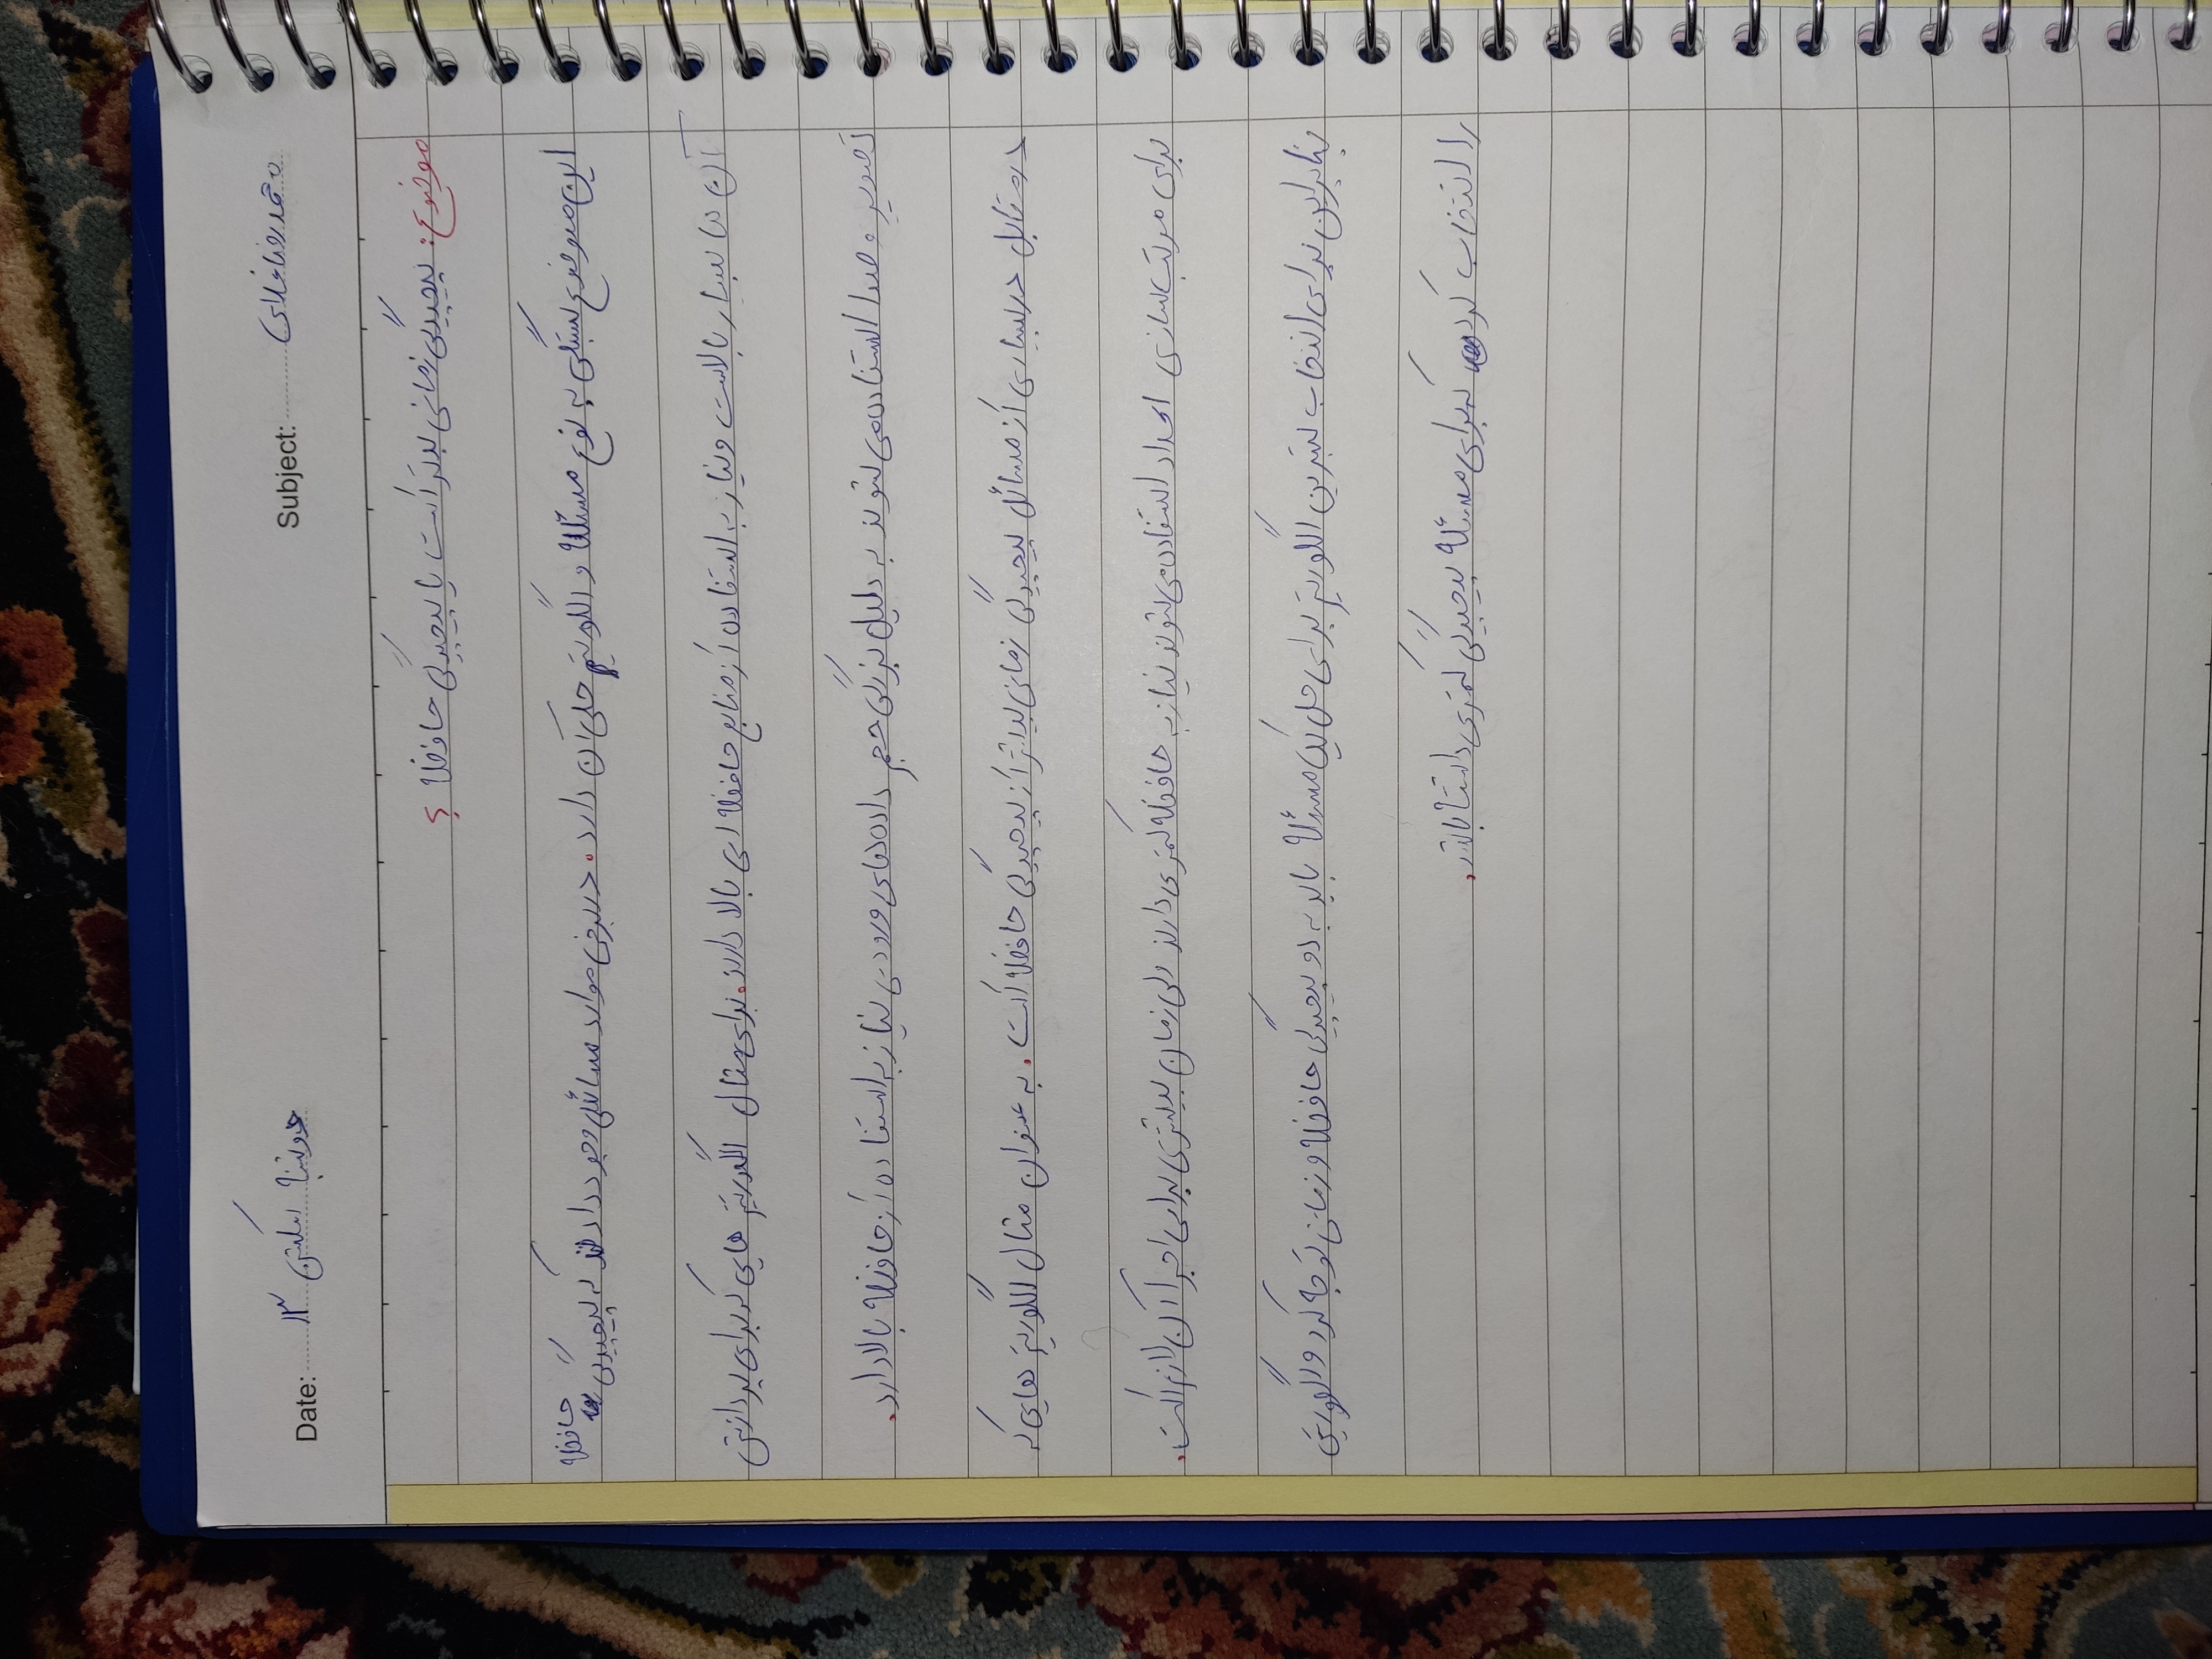 Date: دوشنبه سکشن ۱۳
Subject: محمدرضا غلامی
موضوع: پیچیدگی زمانی بدتر است یا پیچیدگی حافظه ؟
این موضوع بستگی به نوع مسئله و الگوریتم حل آن دارد. در برخی موارد مسائلی وجود دارند که پیچیدگی حافظه
آن ها بسیار بالاست و نیاز به استفاده از منابع حافظه ای بالا دارند. برای مثال الگوریتم هایی که برای پردازش
تصویر و صدا استفاده می شوند به دلیل بزرگی حجم داده های ورودی نیاز به استفاده از حافظه بالا دارد.
در مقابل در بسیاری از مسائل پیچیدگی زمانی بدتر از پیچیدگی حافظه است. به عنوان مثال الگوریتم هایی که
برای مرتب سازی اعداد استفاده می شوند نیاز به حافظه کمتری دارند ولی زمان بیشتری برای اجرا آن لازم است.
بنابراین برای انتخاب بهترین الگوریتم برای حل یک مسئله باید به دو پیچیدگی حافظه و زمانی توجه کرد و الگوریتمی
را انتخاب کرد که برای مسئله پیچیدگی کمتری داشته باشد.